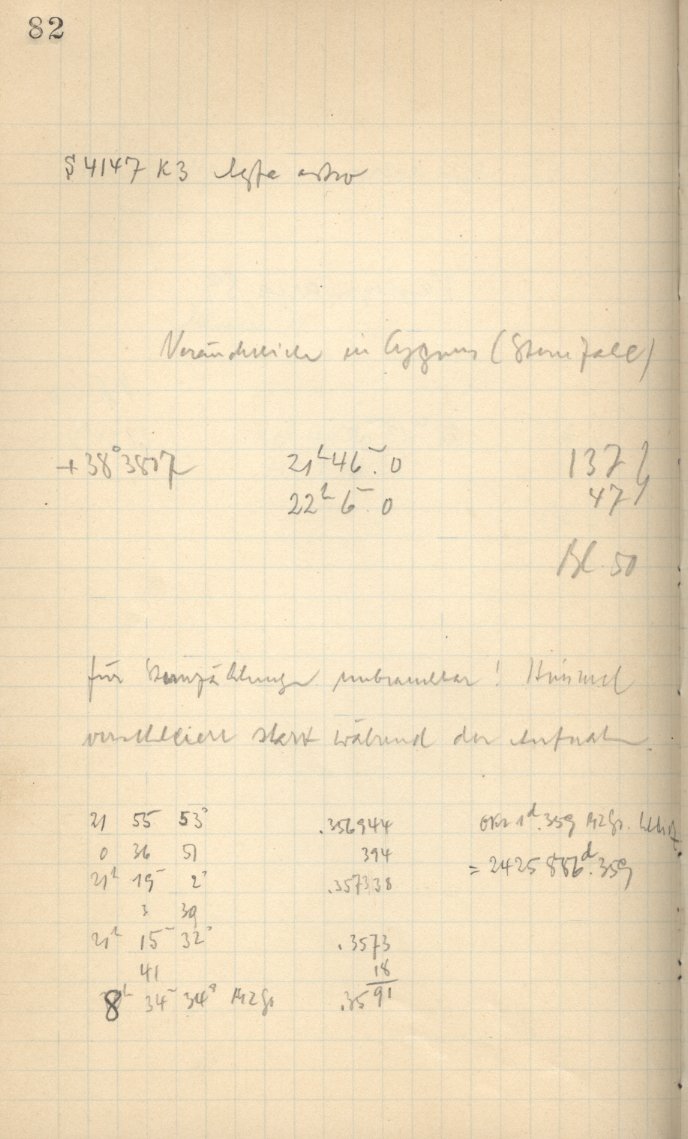 82
S 4147 K3 Agfa astro
Veränderliche in Cygnus (Sternfeld)
+38° 3807
21ʰ 46ᵐ.0 137
22ʰ 6ᵐ.0 47
Bl. 50
für Sternzählungen unbrauchbar! Himmel
verschleiert stark während der Aufnahme.
21 55 53ˢ .356944 Okt 1ᵈ.359 MZGr.
0 36 51 394 = 2425886ᵈ.359
21ʰ 19ᵐ 2ˢ .357338
3 30
21ʰ 15ᵐ 32ˢ .3573
41 18
8ʰ 34ᵐ 34ˢ MZGr .3591